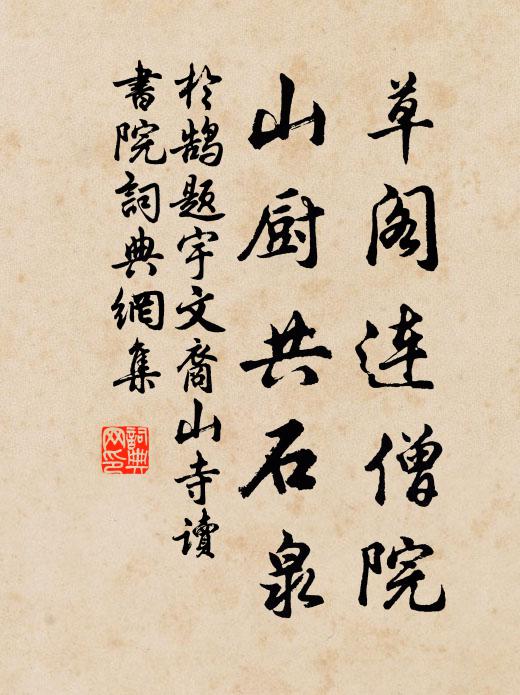 草阁连僧院
山厨共石泉
於鹄题宇文裔山寺读
書院詞典網集
詞典
网印